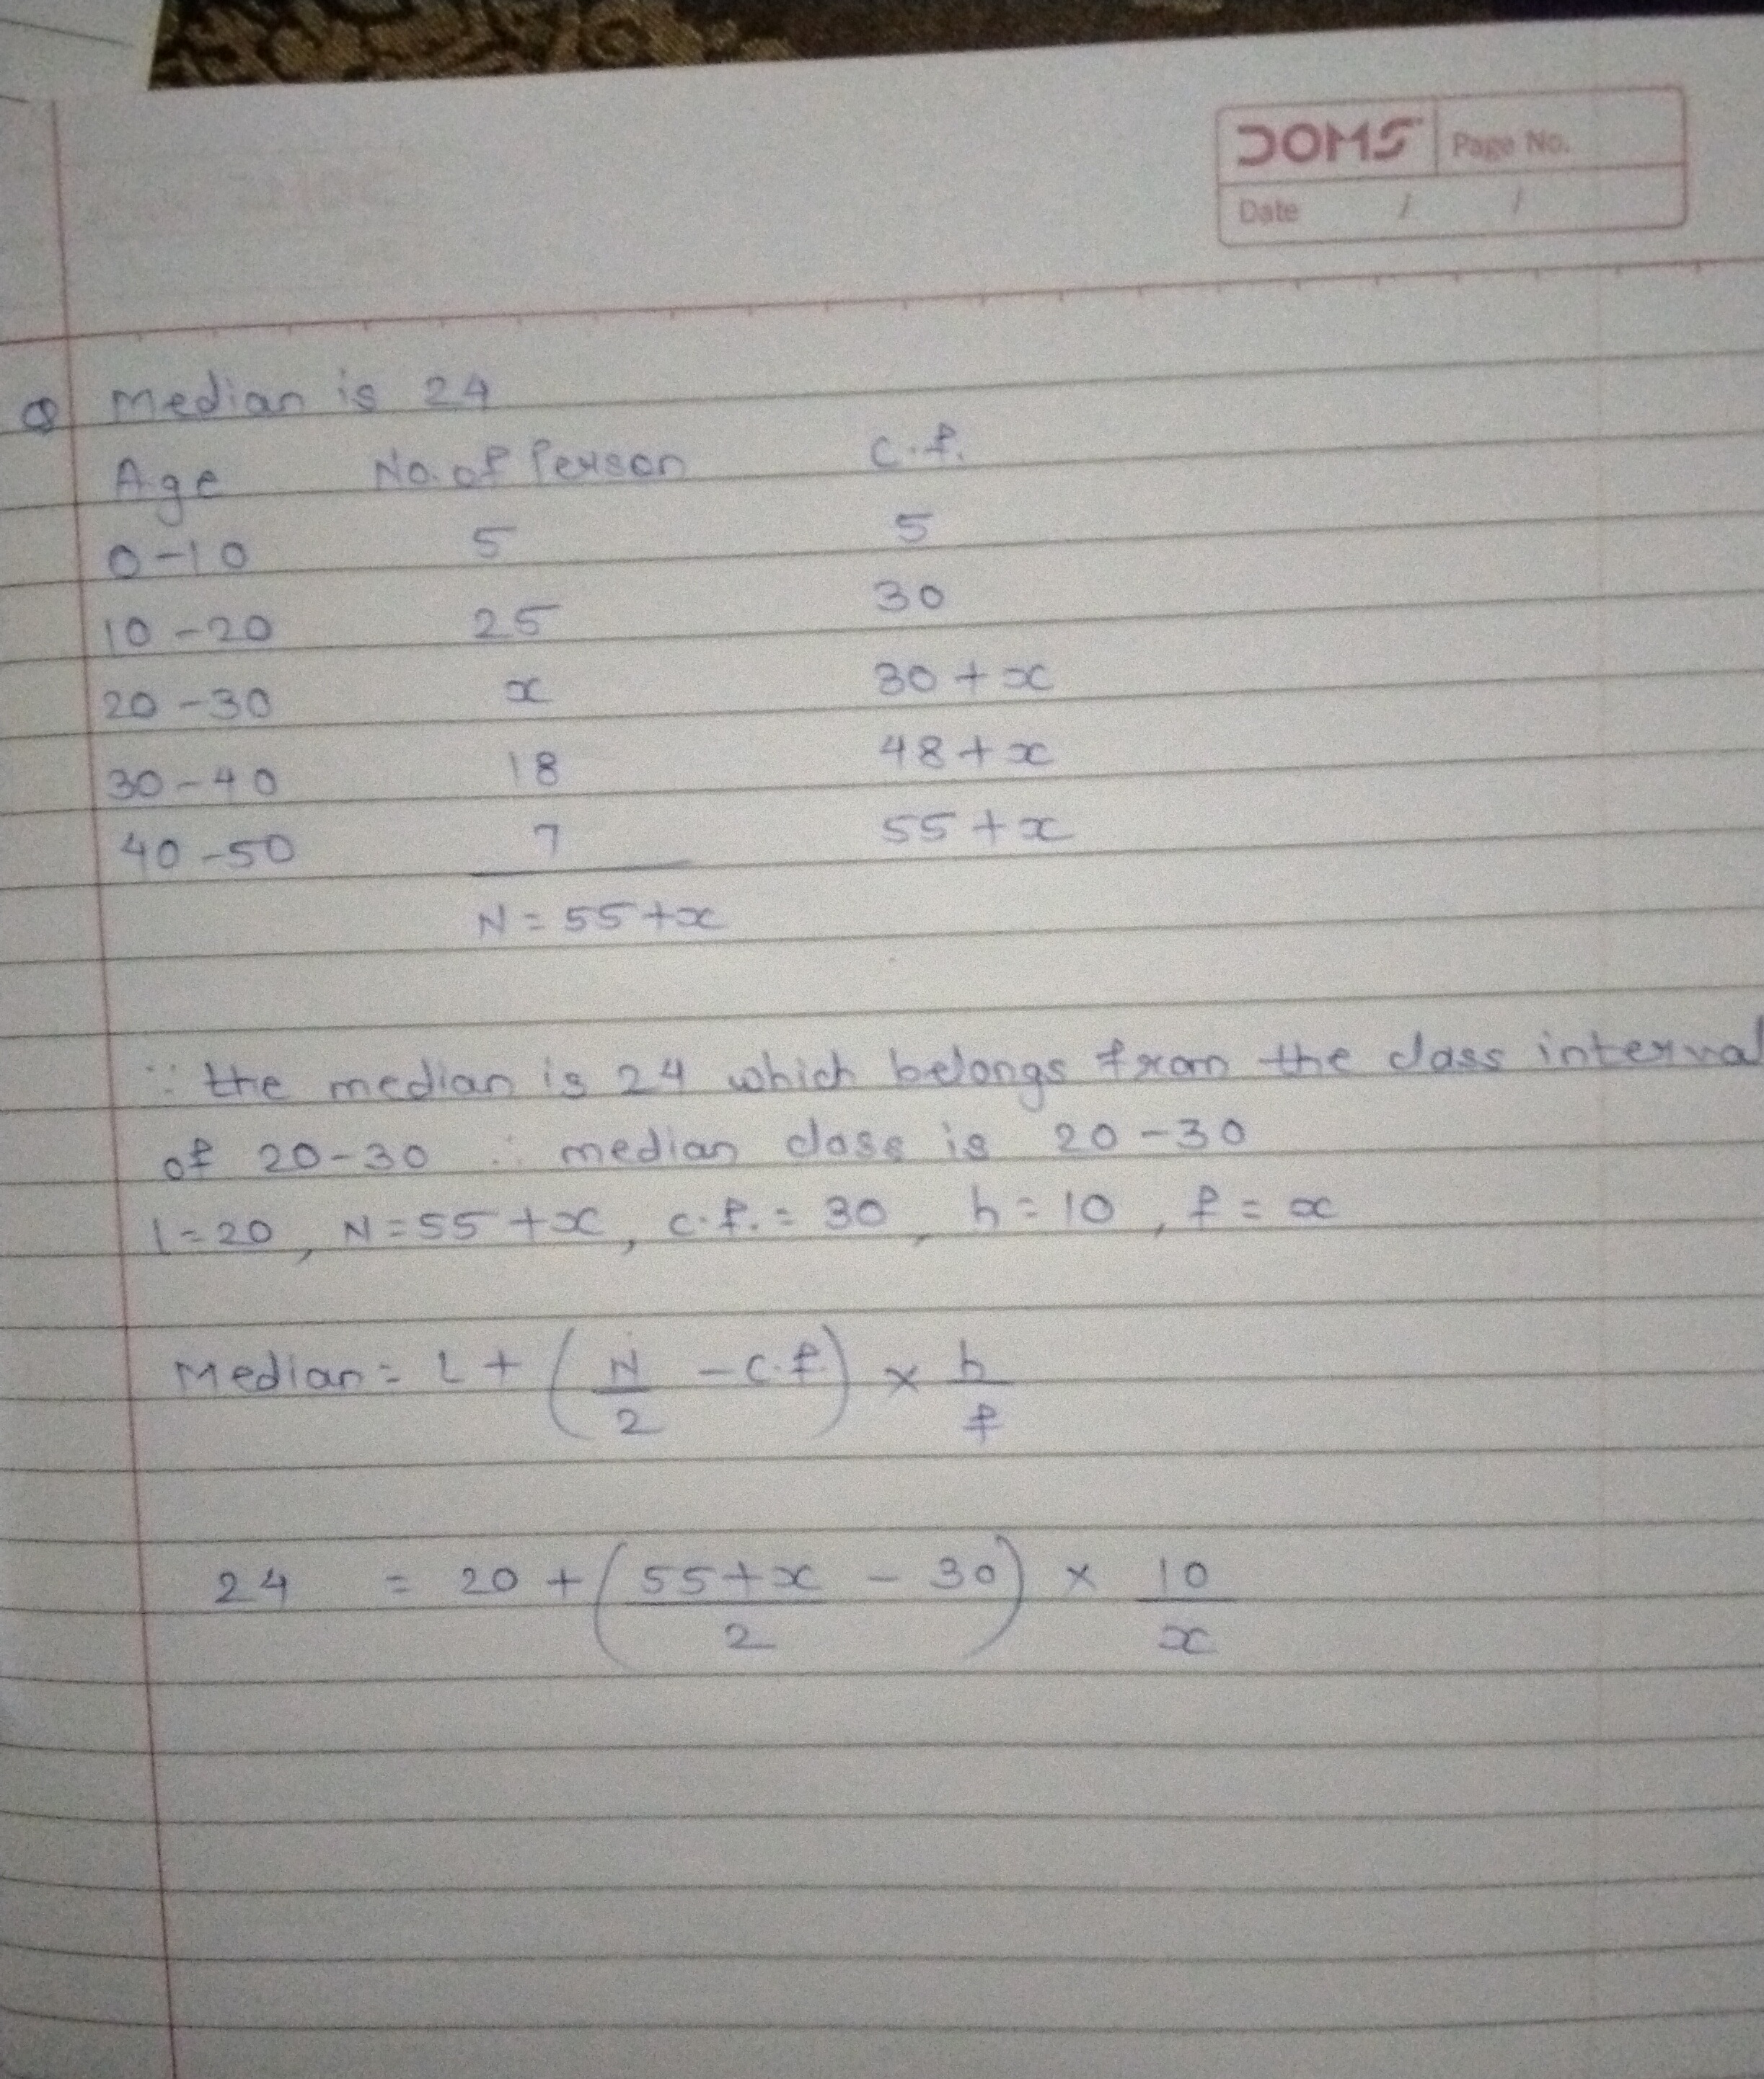 DOMS Page No.
Date / /
Q Median is 24
Age No. of Person c.f.
0-10 5 5
10-20 25 30
20-30 x 30+x
30-40 18 48+x
40-50 7 55+x
N = 55+x
∵ the median is 24 which belongs from the class interval
of 20-30 ∴ median class is 20-30
l=20, N=55+x, c.f.=30, h=10, f=x
Median = L + (N/2 - c.f.) × h/f
24 = 20 + (55+x/2 - 30) × 10/x